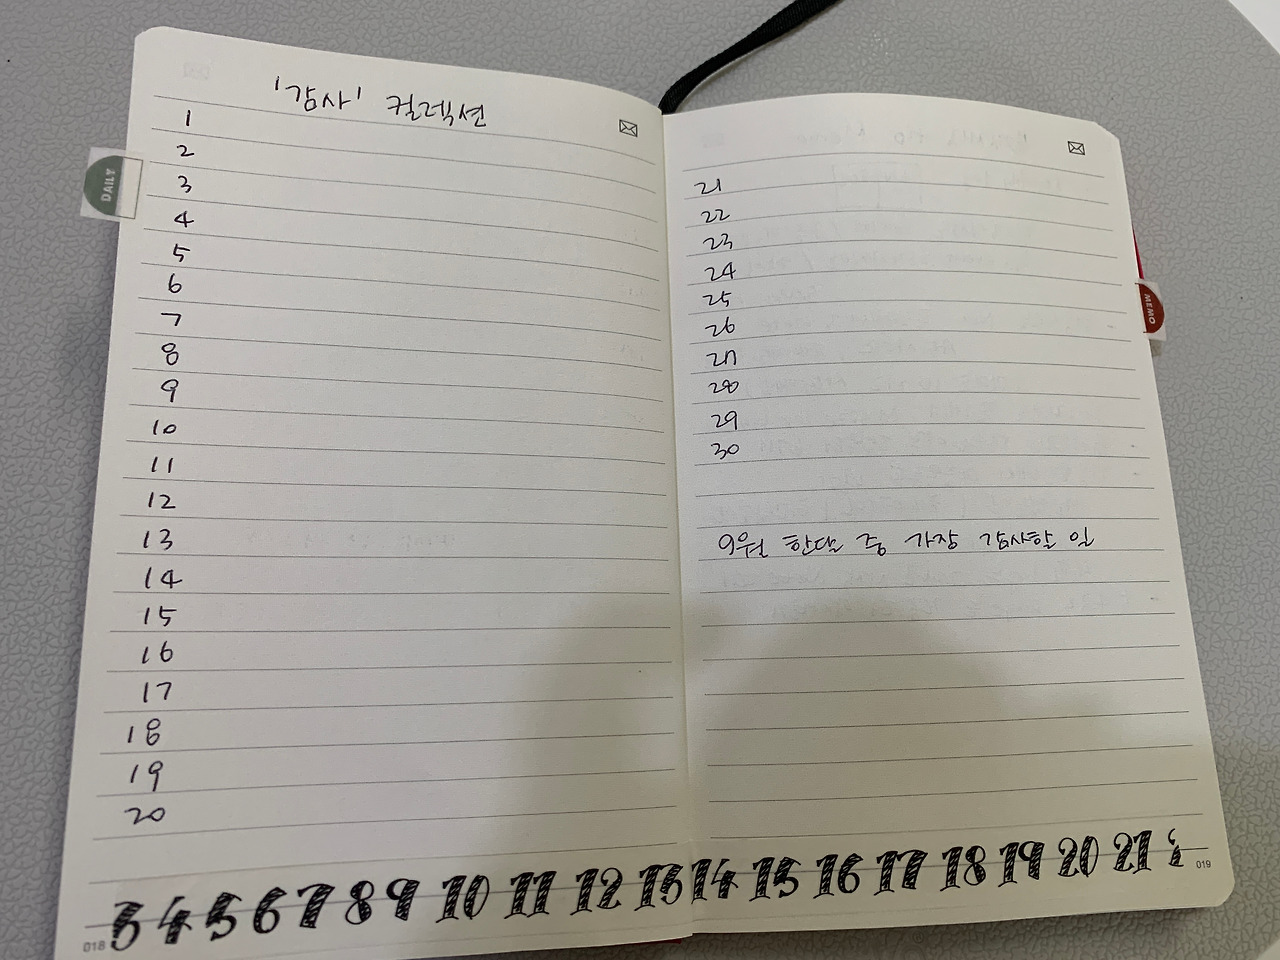 '감사' 컬렉션
1
2
3
4
5
6
7
8
9
10
11
12
13
14
15
16
17
18
19
20
DAILY
018
21
22
23
24
25
26
27
28
29
30
9월 한달 중 가장 감사할 일
MEMO
3 4 5 6 7 8 9 10 11 12 13 14 15 16 17 18 19 20 21
019